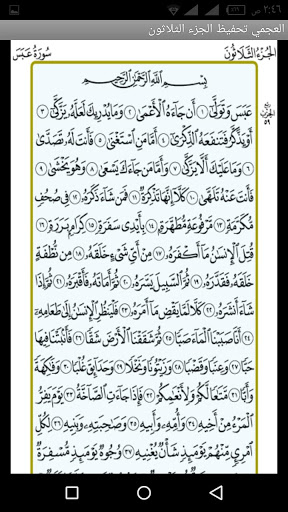 ٢:٤٦
٪٦٦
العجمي تحفيظ الجزء الثلاثون
الجُزْءُ الثَّلَاثُونَ
سُورَةُ عَبَسَ
بِسْمِ اللَّهِ الرَّحْمَٰنِ الرَّحِيمِ
عَبَسَ وَتَوَلَّىٰٓ ١ أَن جَآءَهُ ٱلْأَعْمَىٰ ٢ وَمَا يُدْرِيكَ لَعَلَّهُۥ يَزَّكَّىٰٓ ٣
أَوْ يَذَّكَّرُ فَتَنفَعَهُ ٱلذِّكْرَىٰٓ ٤ أَمَّا مَنِ ٱسْتَغْنَىٰ ٥ فَأَنتَ لَهُۥ تَصَدَّىٰ
٦ وَمَا عَلَيْكَ أَلَّا يَزَّكَّىٰ ٧ وَأَمَّا مَن جَآءَكَ يَسْعَىٰ ٨ وَهُوَ يَخْشَىٰ
٩ فَأَنتَ عَنْهُ تَلَهَّىٰ ١٠ كَلَّآ إِنَّهَا تَذْكِرَةٌ ١١ فَمَن شَآءَ ذَكَرَهُۥ ١٢ فِى صُحُفٍ
مُّكَرَّمَةٍ ١٣ مَّرْفُوعَةٍ مُّطَهَّرَةٍۭ ١٤ بِأَيْدِى سَفَرَةٍ ١٥ كِرَامٍۭ بَرَرَةٍ ١٦
قُتِلَ ٱلْإِنسَٰنُ مَآ أَكْفَرَهُۥ ١٧ مِنْ أَىِّ شَىْءٍ خَلَقَهُۥ ١٨ مِن نُّطْفَةٍ
خَلَقَهُۥ فَقَدَّرَهُۥ ١٩ ثُمَّ ٱلسَّبِيلَ يَسَّرَهُۥ ٢٠ ثُمَّ أَمَاتَهُۥ فَأَقْبَرَهُۥ ٢١ ثُمَّ إِذَا
شَآءَ أَنشَرَهُۥ ٢٢ كَلَّا لَمَّا يَقْضِ مَآ أَمَرَهُۥ ٢٣ فَلْيَنظُرِ ٱلْإِنسَٰنُ إِلَىٰ طَعَامِهِۦٓ
٢٤ أَنَّا صَبَبْنَا ٱلْمَآءَ صَبًّا ٢٥ ثُمَّ شَقَقْنَا ٱلْأَرْضَ شَقًّا ٢٦ فَأَنۢبَتْنَا فِيهَا
حَبًّا ٢٧ وَعِنَبًا وَقَضْبًا ٢٨ وَزَيْتُونًا وَنَخْلًا ٢٩ وَحَدَآئِقَ غُلْبًا ٣٠ وَفَٰكِهَةً
وَأَبًّا ٣١ مَّتَٰعًا لَّكُمْ وَلِأَنْعَٰمِكُمْ ٣٢ فَإِذَا جَآءَتِ ٱلصَّآخَّةُ ٣٣ يَوْمَ يَفِرُّ
ٱلْمَرْءُ مِنْ أَخِيهِ ٣٤ وَأُمِّهِۦ وَأَبِيهِ ٣٥ وَصَٰحِبَتِهِۦ وَبَنِيهِ ٣٦ لِكُلِّ
ٱمْرِئٍ مِّنْهُمْ يَوْمَئِذٍ شَأْنٌ يُغْنِيهِ ٣٧ وُجُوهٌ يَوْمَئِذٍ مُّسْفِرَةٌ